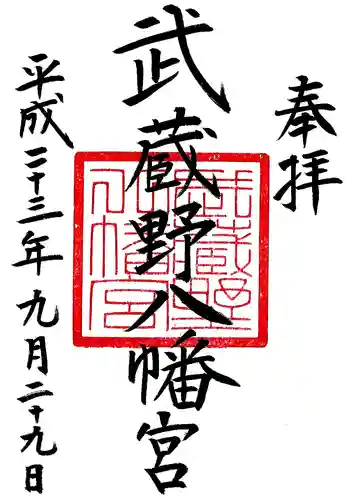 奉拝
武蔵野八幡宮
武蔵野八幡宮
平成二十三年九月二十九日